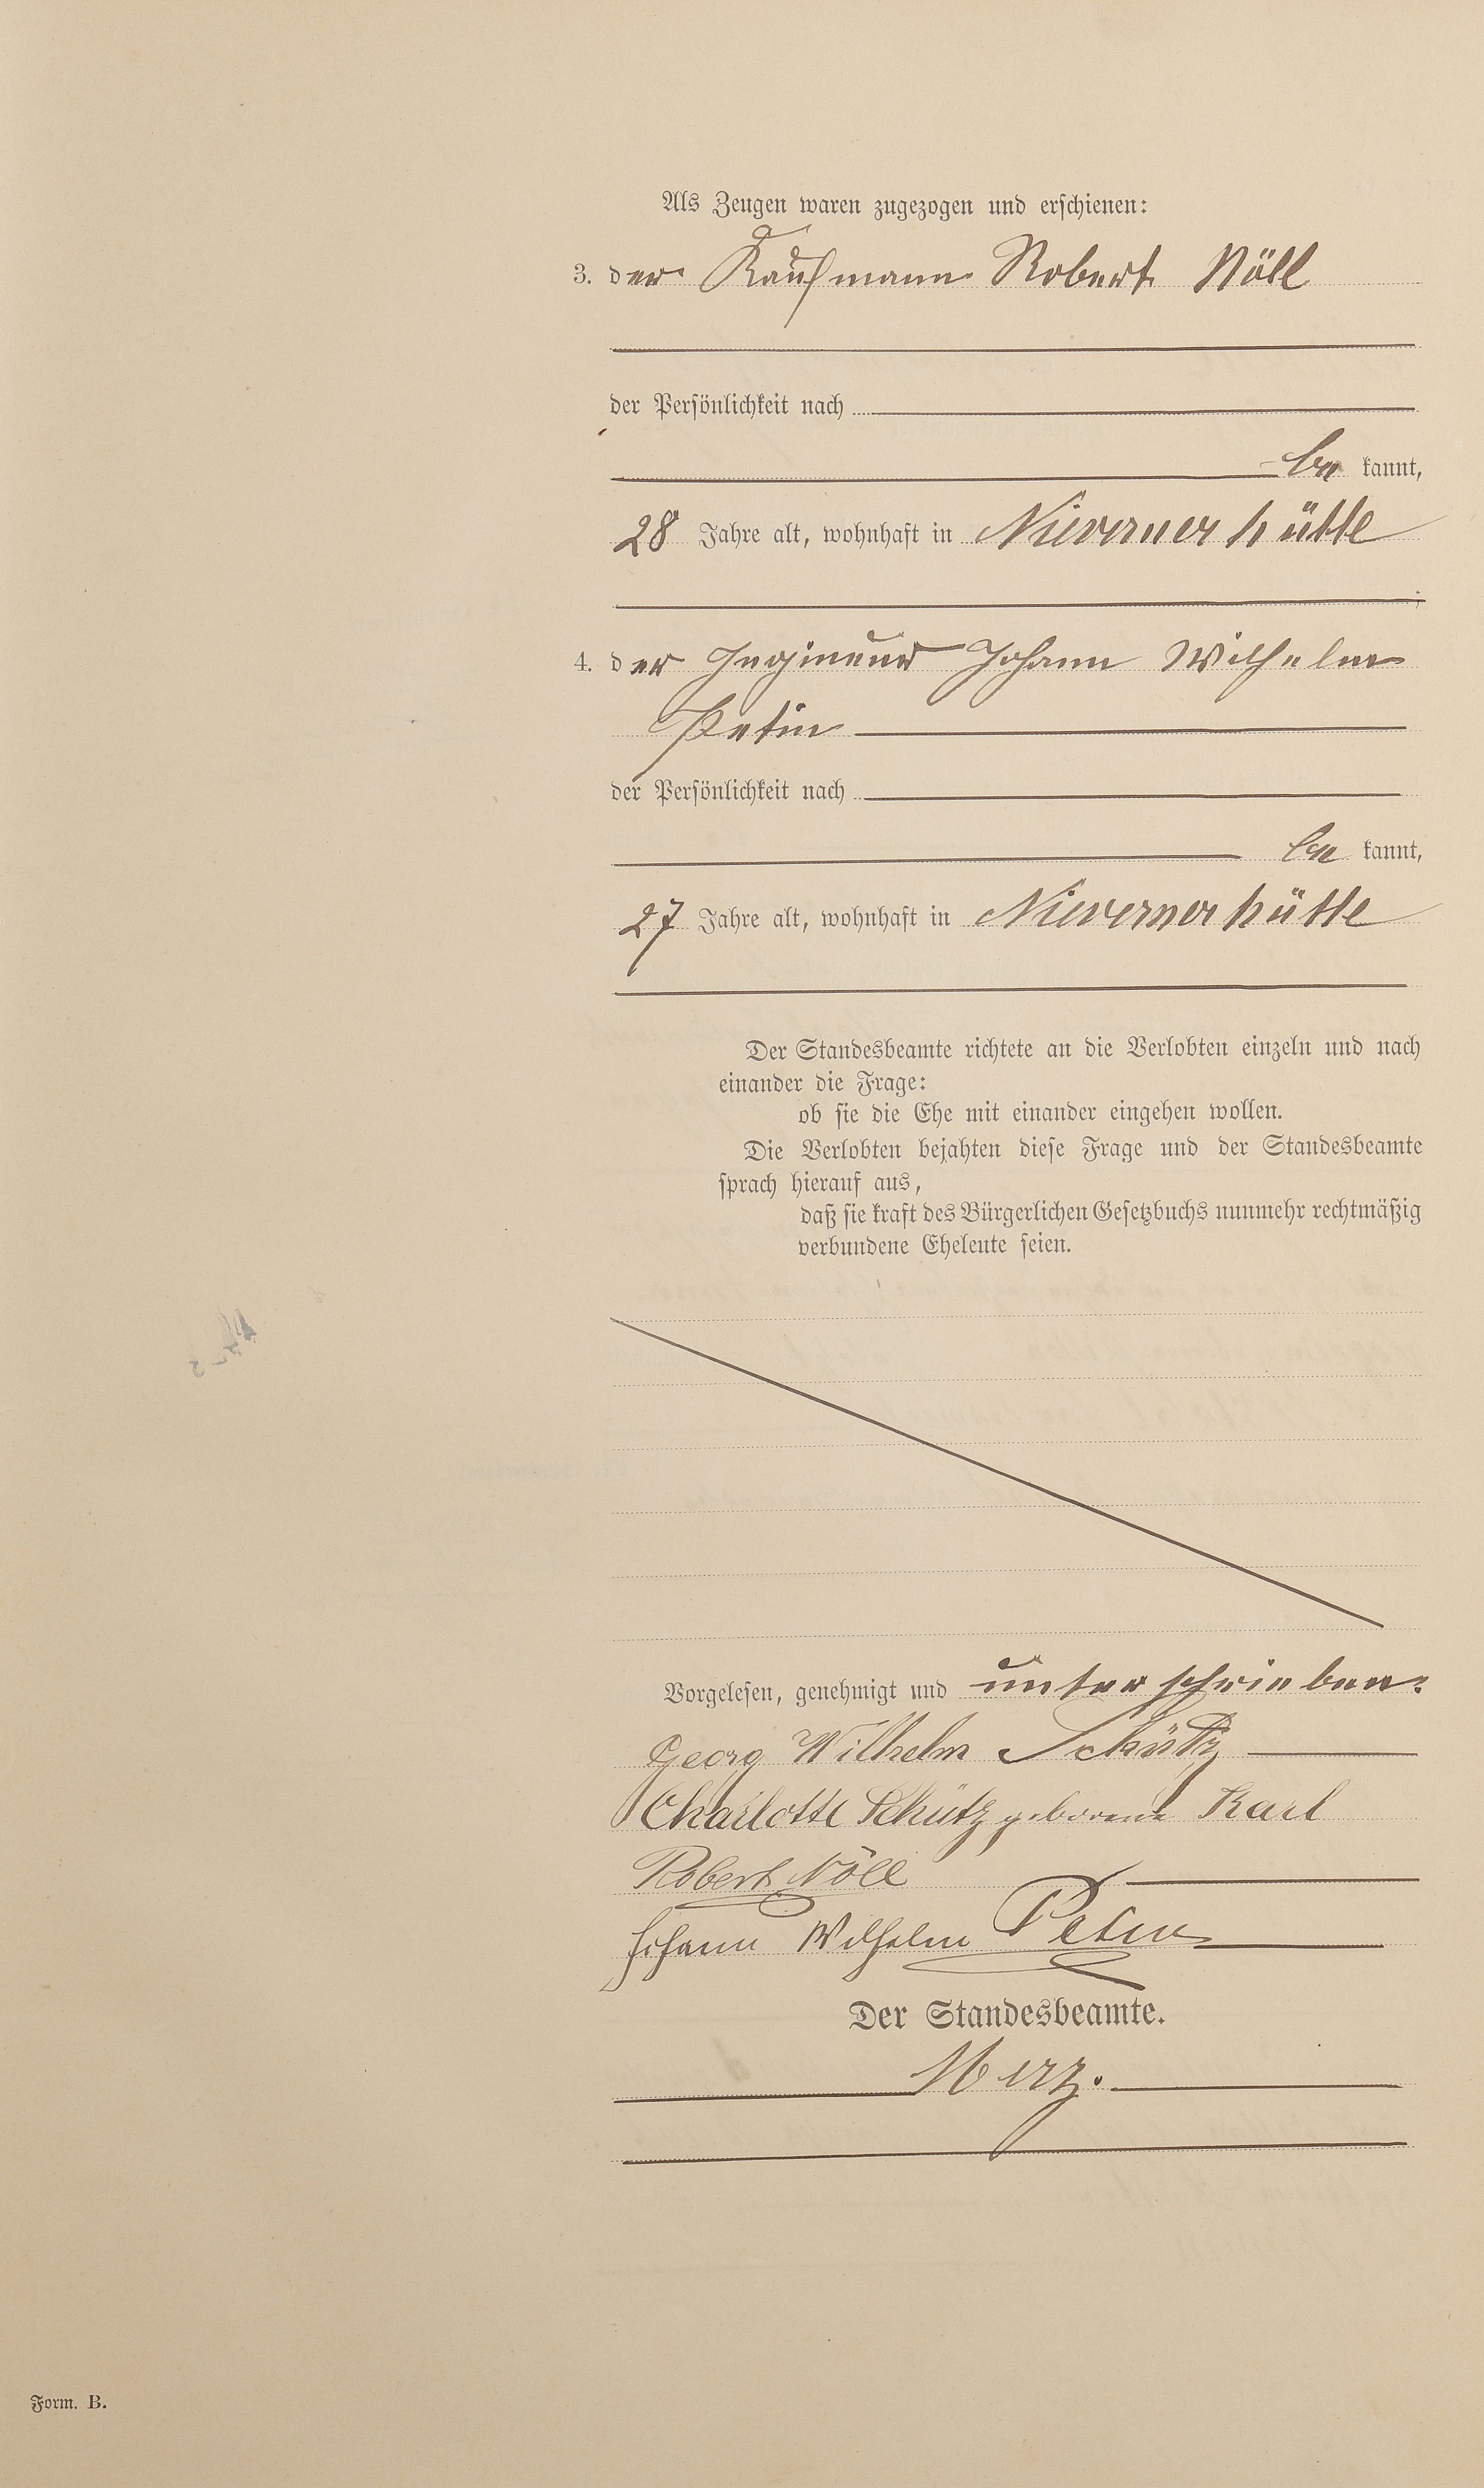 Als Zeugen waren zugezogen und erschienen:
3. der Kaufmann Robert Nöll
der Persönlichkeit nach
be kannt,
28 Jahre alt, wohnhaft in Nievernerhütte
;
4. der Ingenieur Johann Wilhelm
Petin
der Persönlichkeit nach
be kannt,
27 Jahre alt, wohnhaft in Nievernerhütte
Der Standesbeamte richtete an die Verlobten einzeln und nach
einander die Frage:
ob sie die Ehe mit einander eingehen wollen.
Die Verlobten bejahten diese Frage und der Standesbeamte
sprach hierauf aus,
daß sie kraft des Bürgerlichen Gesetzbuchs nunmehr rechtmäßig
verbundene Eheleute seien.
Vorgelesen, genehmigt und unterschrieben:
Georg Wilhelm Schütz
Charlotte Schütz geborene Karl
Robert Nöll
Johann Wilhelm Petin
Der Standesbeamte.
Merz.
Form. B.